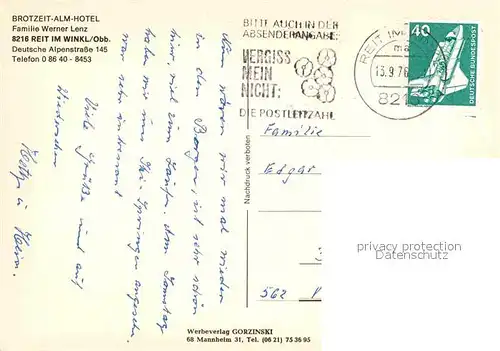 BROTZEIT-ALM-HOTEL
Familie Werner Lenz
8216 REIT IM WINKL/Obb.
Deutsche Alpenstraße 145
Telefon 0 86 40 - 8453
BITTE AUCH IN DER
ABSENDERANGABE:
VERGISS
MEIN
NICHT:
DIE POSTLEITZAHL
REIT IM
13.9.76
8216
40
DEUTSCHE BUNDESPOST
Nun waren wir mal wieder
in den Bergen, ist sehr schön
hier, viel zum Laufen. Am Samstag
habe mir ein Ski-Springen angesehn.
war sehr interessant
Viele Grüße und auf
Wiedersehen
Familie
Edgar
562
Nachdruck verboten
privacy protection
Datenschutz
Werbeverlag GORZINSKI
68 Mannheim 31, Tel. (06 21) 75 36 95